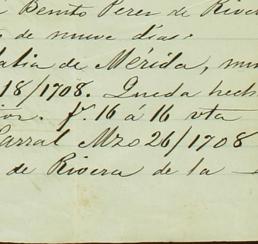 Benito Perez de River
s de nueve dias.
alia de Mérida, mu
18/1708. Queda hech
ior. f. 16 á 16 vta
Carral Mzo 26/1708
de Rivera de la